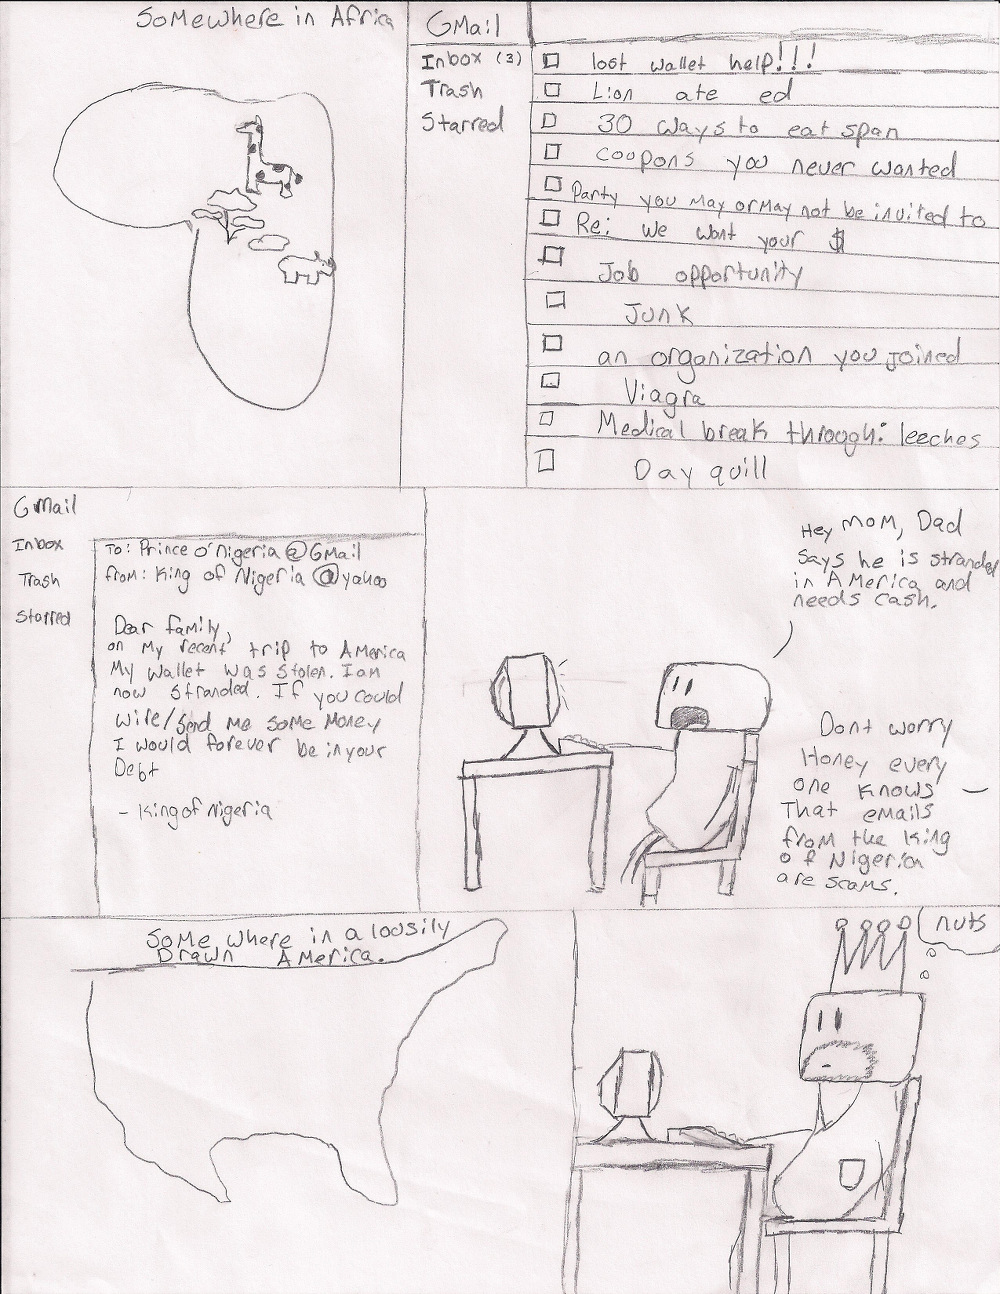 Somewhere in Africa
GMail
Inbox (3)
Trash
Starred
lost wallet help!!!
Lion ate ed
30 ways to eat span
coupons you never wanted
Party you may or may not be invited to
Re: we want your $
Job opportunity
Junk
an organization you joined
Viagra
Medical break through: leeches
Day quill
GMail
Inbox
Trash
Starred
To: Prince o'Nigeria @GMail
from: King of Nigeria @yahoo
Dear family,
on My recent trip to America
My wallet was stolen. I am
now stranded. If you could
wire/send me some Money
I would forever be in your
Debt
- King of Nigeria
Hey MOM, Dad
says he is stranded
in AMerica and
needs cash.
Dont worry
Honey every
one knows
That emails
from the King
of Nigeria
are scams.
Some where in a lousily
Drawn America.
nuts